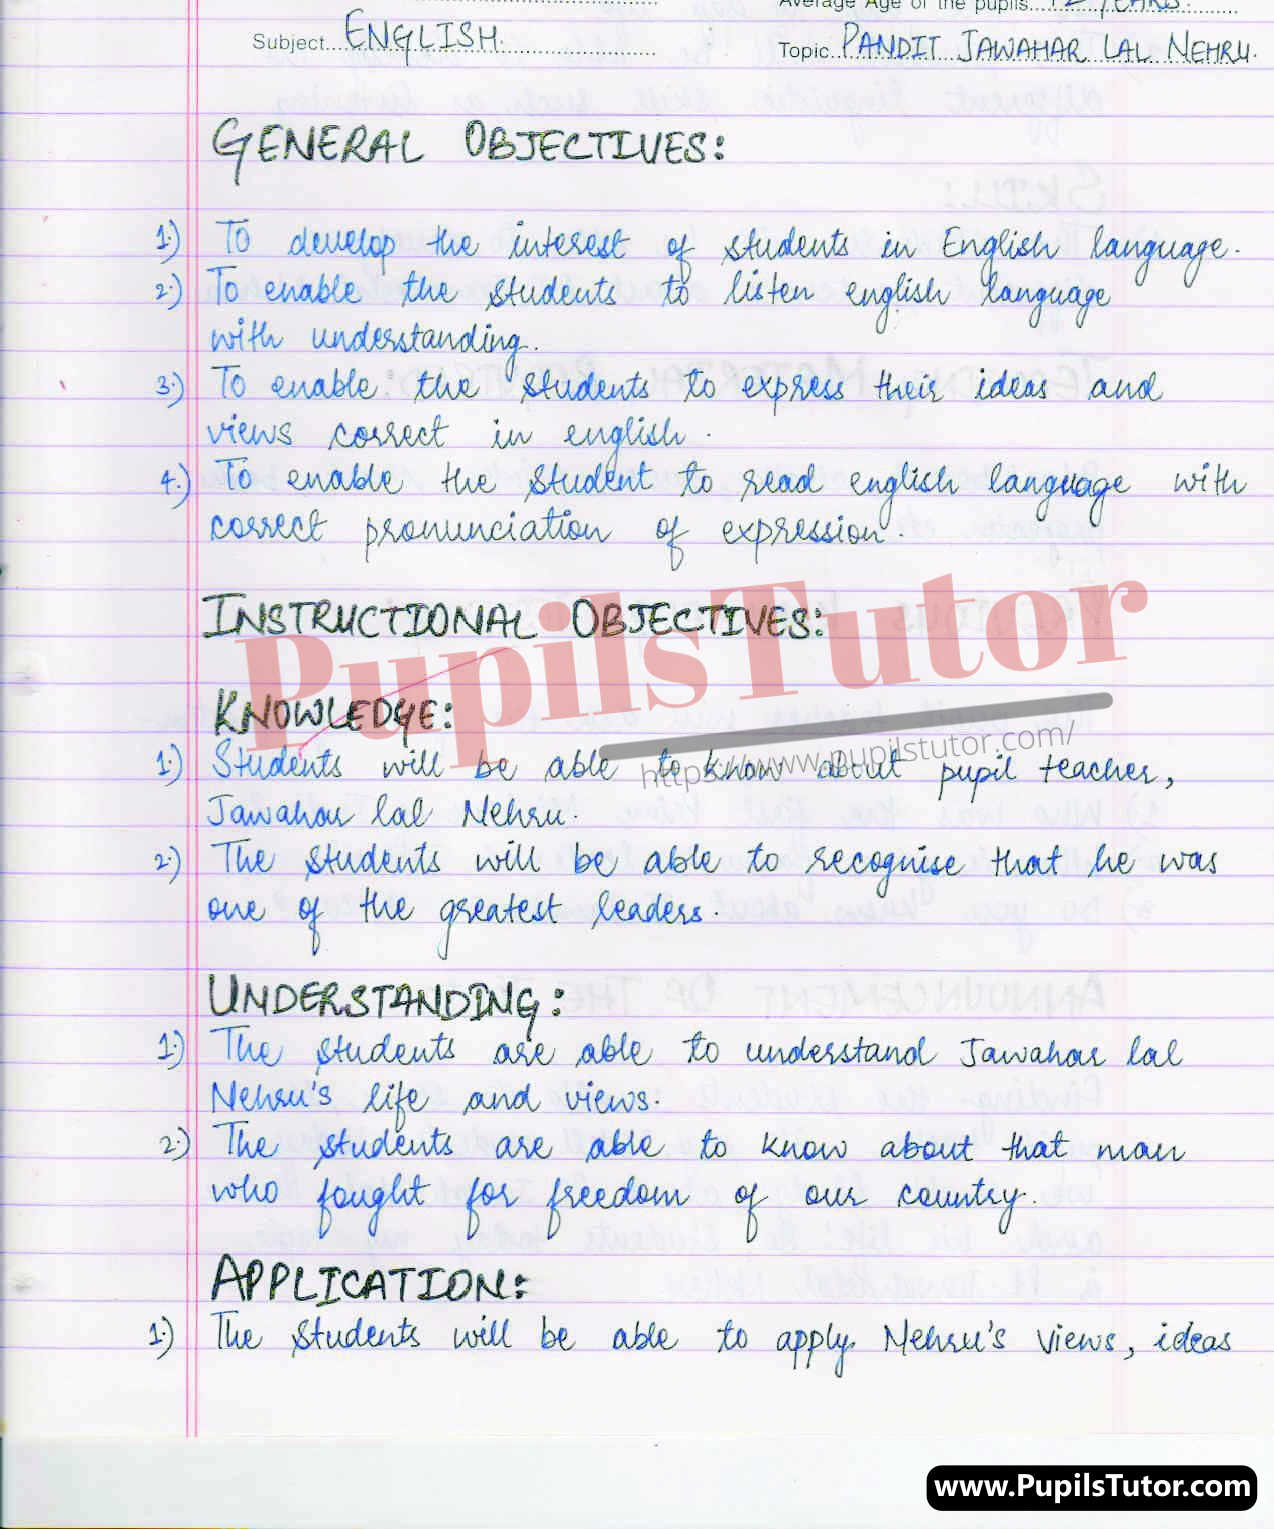 Average Age of the pupils...12 YEARS.
Subject...ENGLISH.
Topic...PANDIT JAWAHAR LAL NEHRU.
GENERAL OBJECTIVES:
1.) To develop the interest of students in English language.
2.) To enable the students to listen english language
with understanding.
3.) To enable the students to express their ideas and
views correct in english.
4.) To enable the student to read english language with
correct pronunciation of expression.
INSTRUCTIONAL OBJECTIVES:
PupilsTutor
https://www.pupilstutor.com/
KNOWLEDGE:
1.) Students will be able to know about pupil teacher,
Jawahar lal Nehru.
2.) The students will be able to recognise that he was
one of the greatest leaders.
UNDERSTANDING:
1.) The students are able to understand Jawahar lal
Nehru's life and views.
2.) The students are able to know about that man
who fought for freedom of our country.
APPLICATION:
1.) The students will be able to apply. Nehru's views, ideas
www.PupilsTutor.com